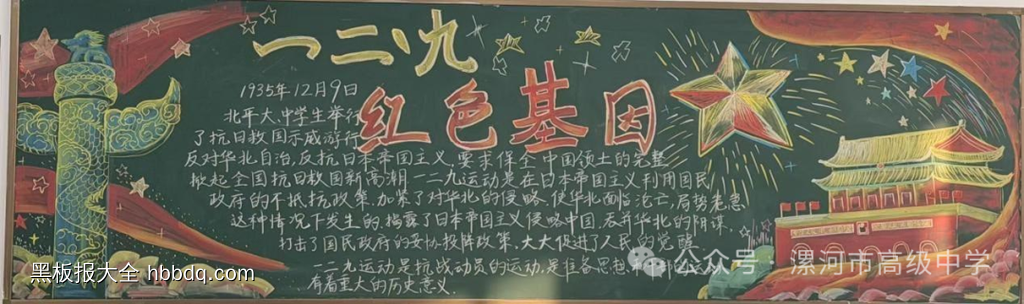 一二·九
红色基因
1935年12月9日
北平大、中学生举行
了抗日救国示威游行
反对华北自治,反抗日本帝国主义,要求保全中国领土的完整
掀起全国抗日救国新高潮 一二九运动是在日本帝国主义利用国民
政府的不抵抗政策,加紧了对华北的侵略,使华北面临沦亡,局势紧急
这种情况下发生的,揭露了日本帝国主义侵略中国,吞并华北的阴谋,
打击了国民政府的妥协投降政策,大大促进了人民的觉醒
一二九运动是抗战动员的运动,是准备思想
有着重大的历史意义.
黑板报大全 hbbdq.com
公众号·漯河市高级中学